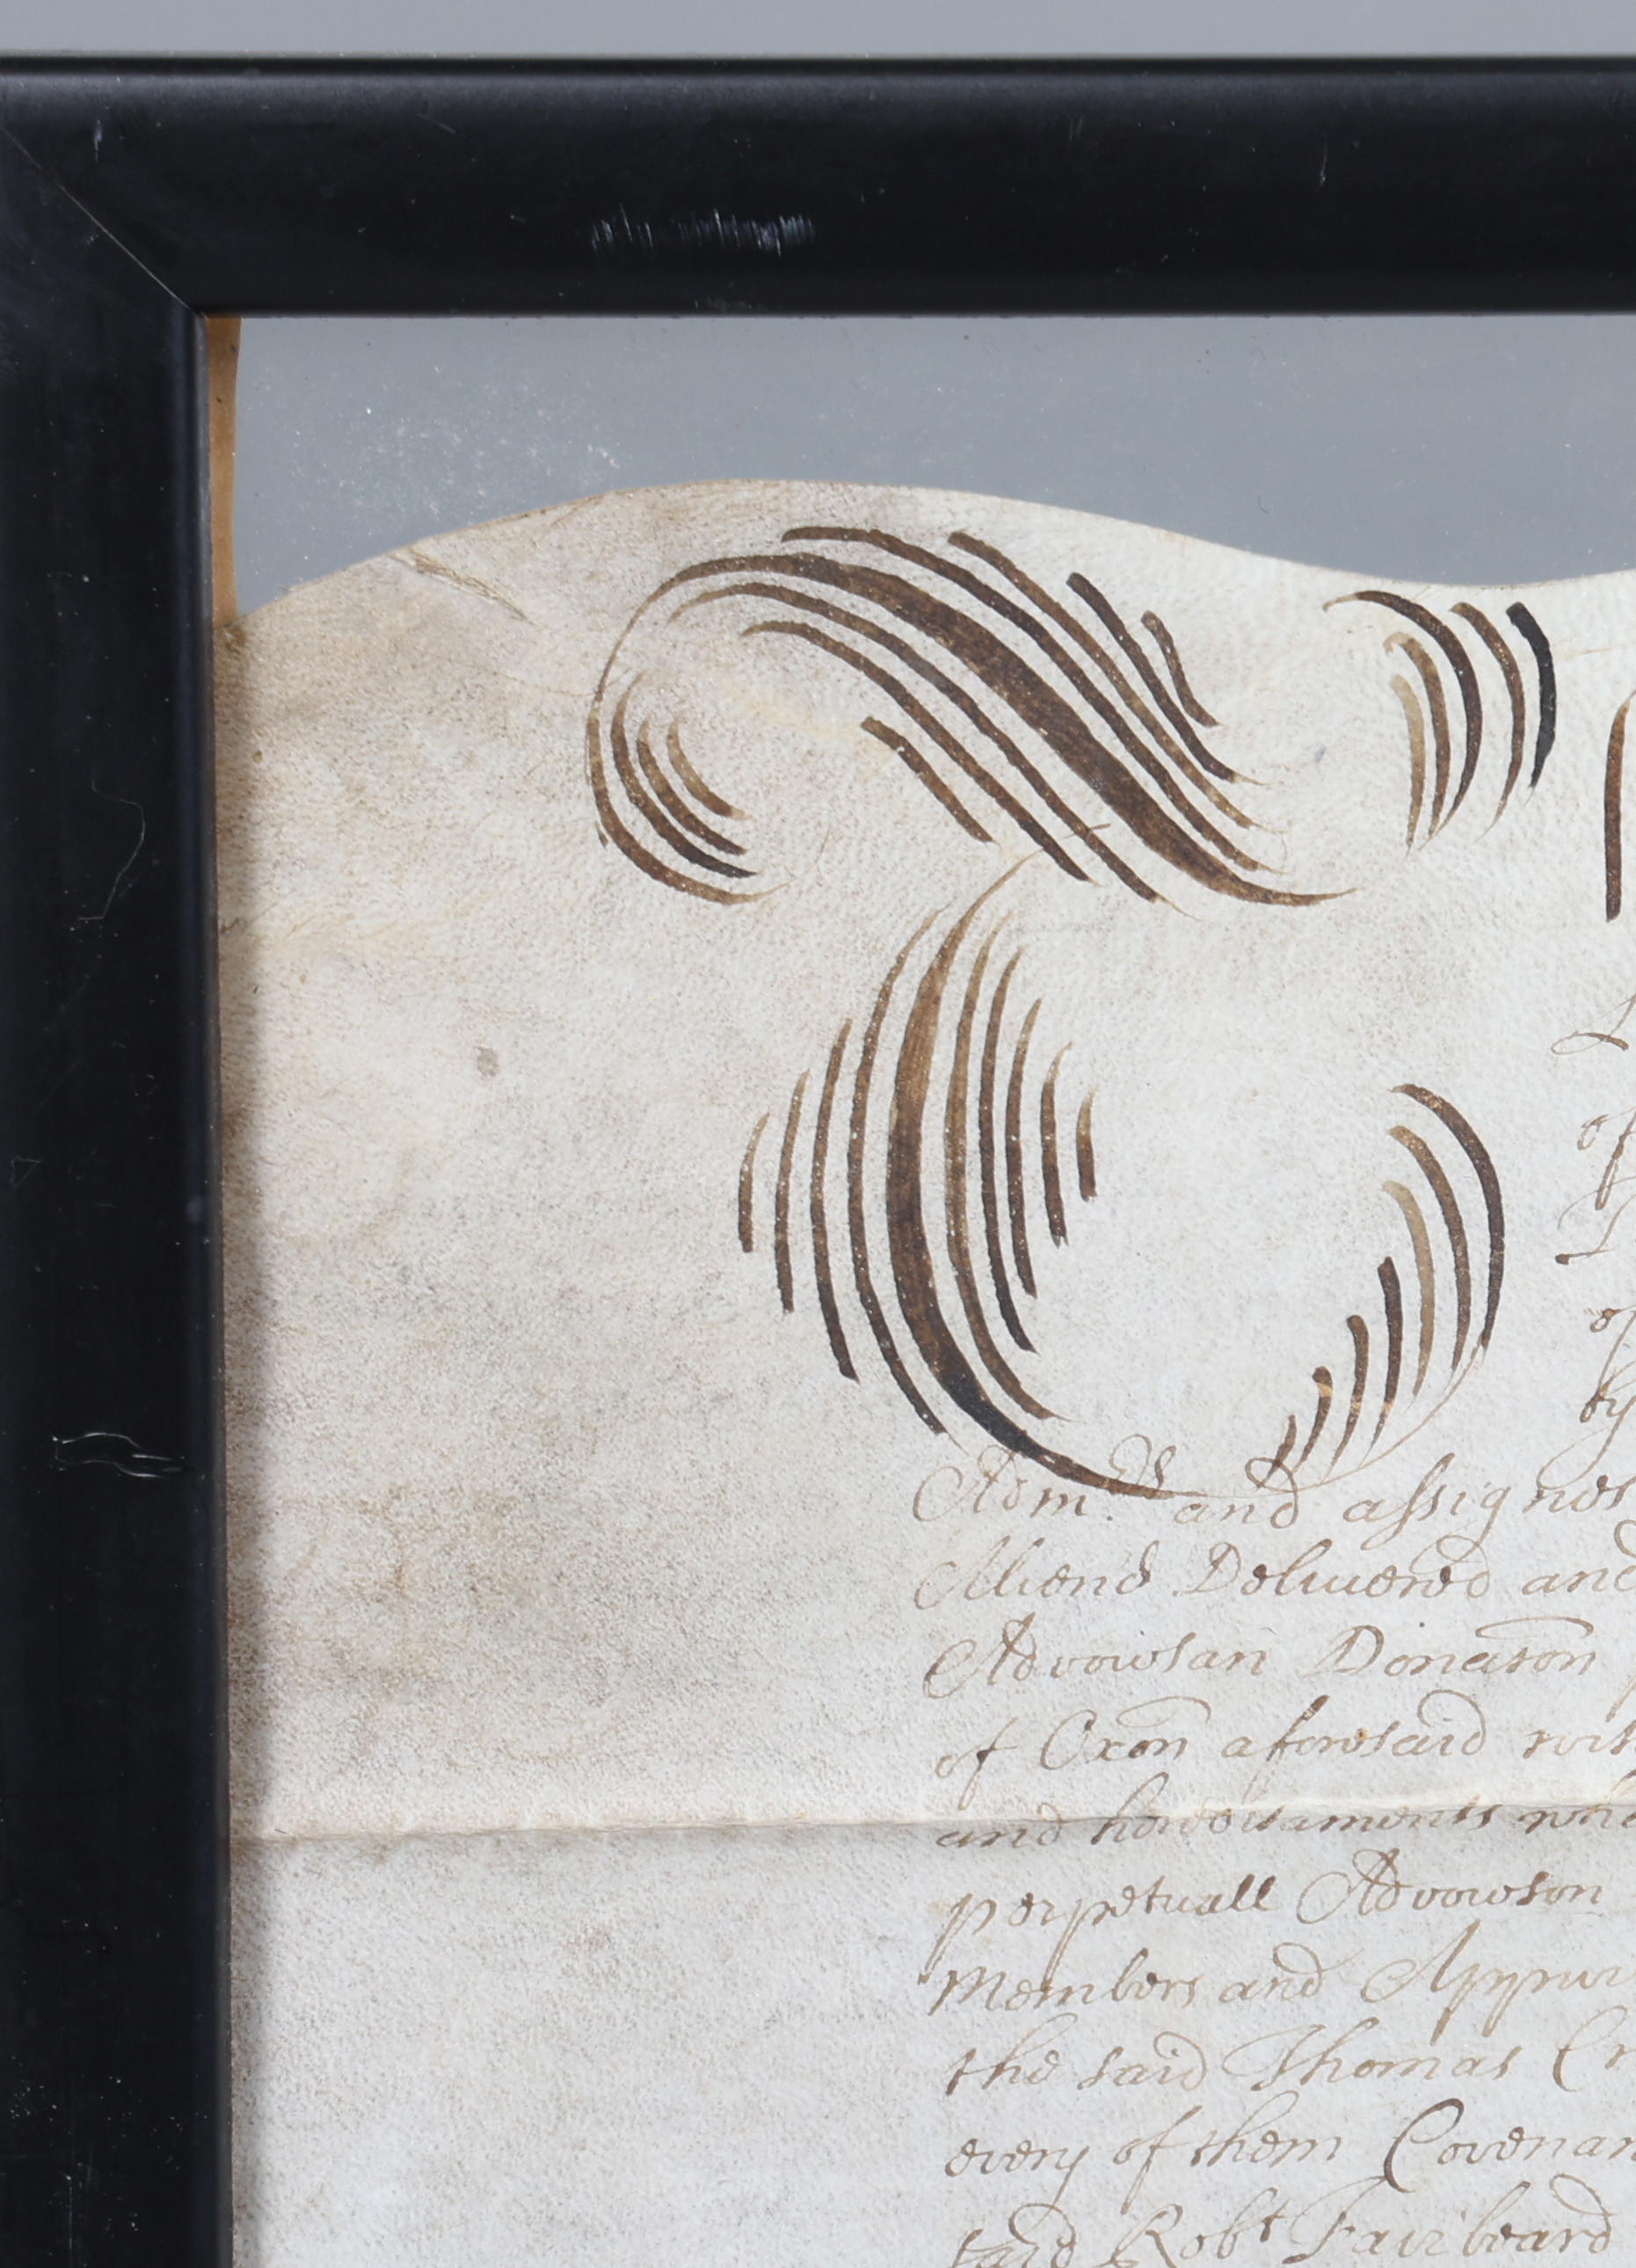 T
of
of
by
Adm.rs and assignes
Aliend Delivered and
Advowsan Donac̄on
of Oxon̄ aforesaid with
and hereditaments whe
perpetuall Advowson
Members and Appur
the said Thomas Cr
every of them Covenan
said Robt Fairbeard